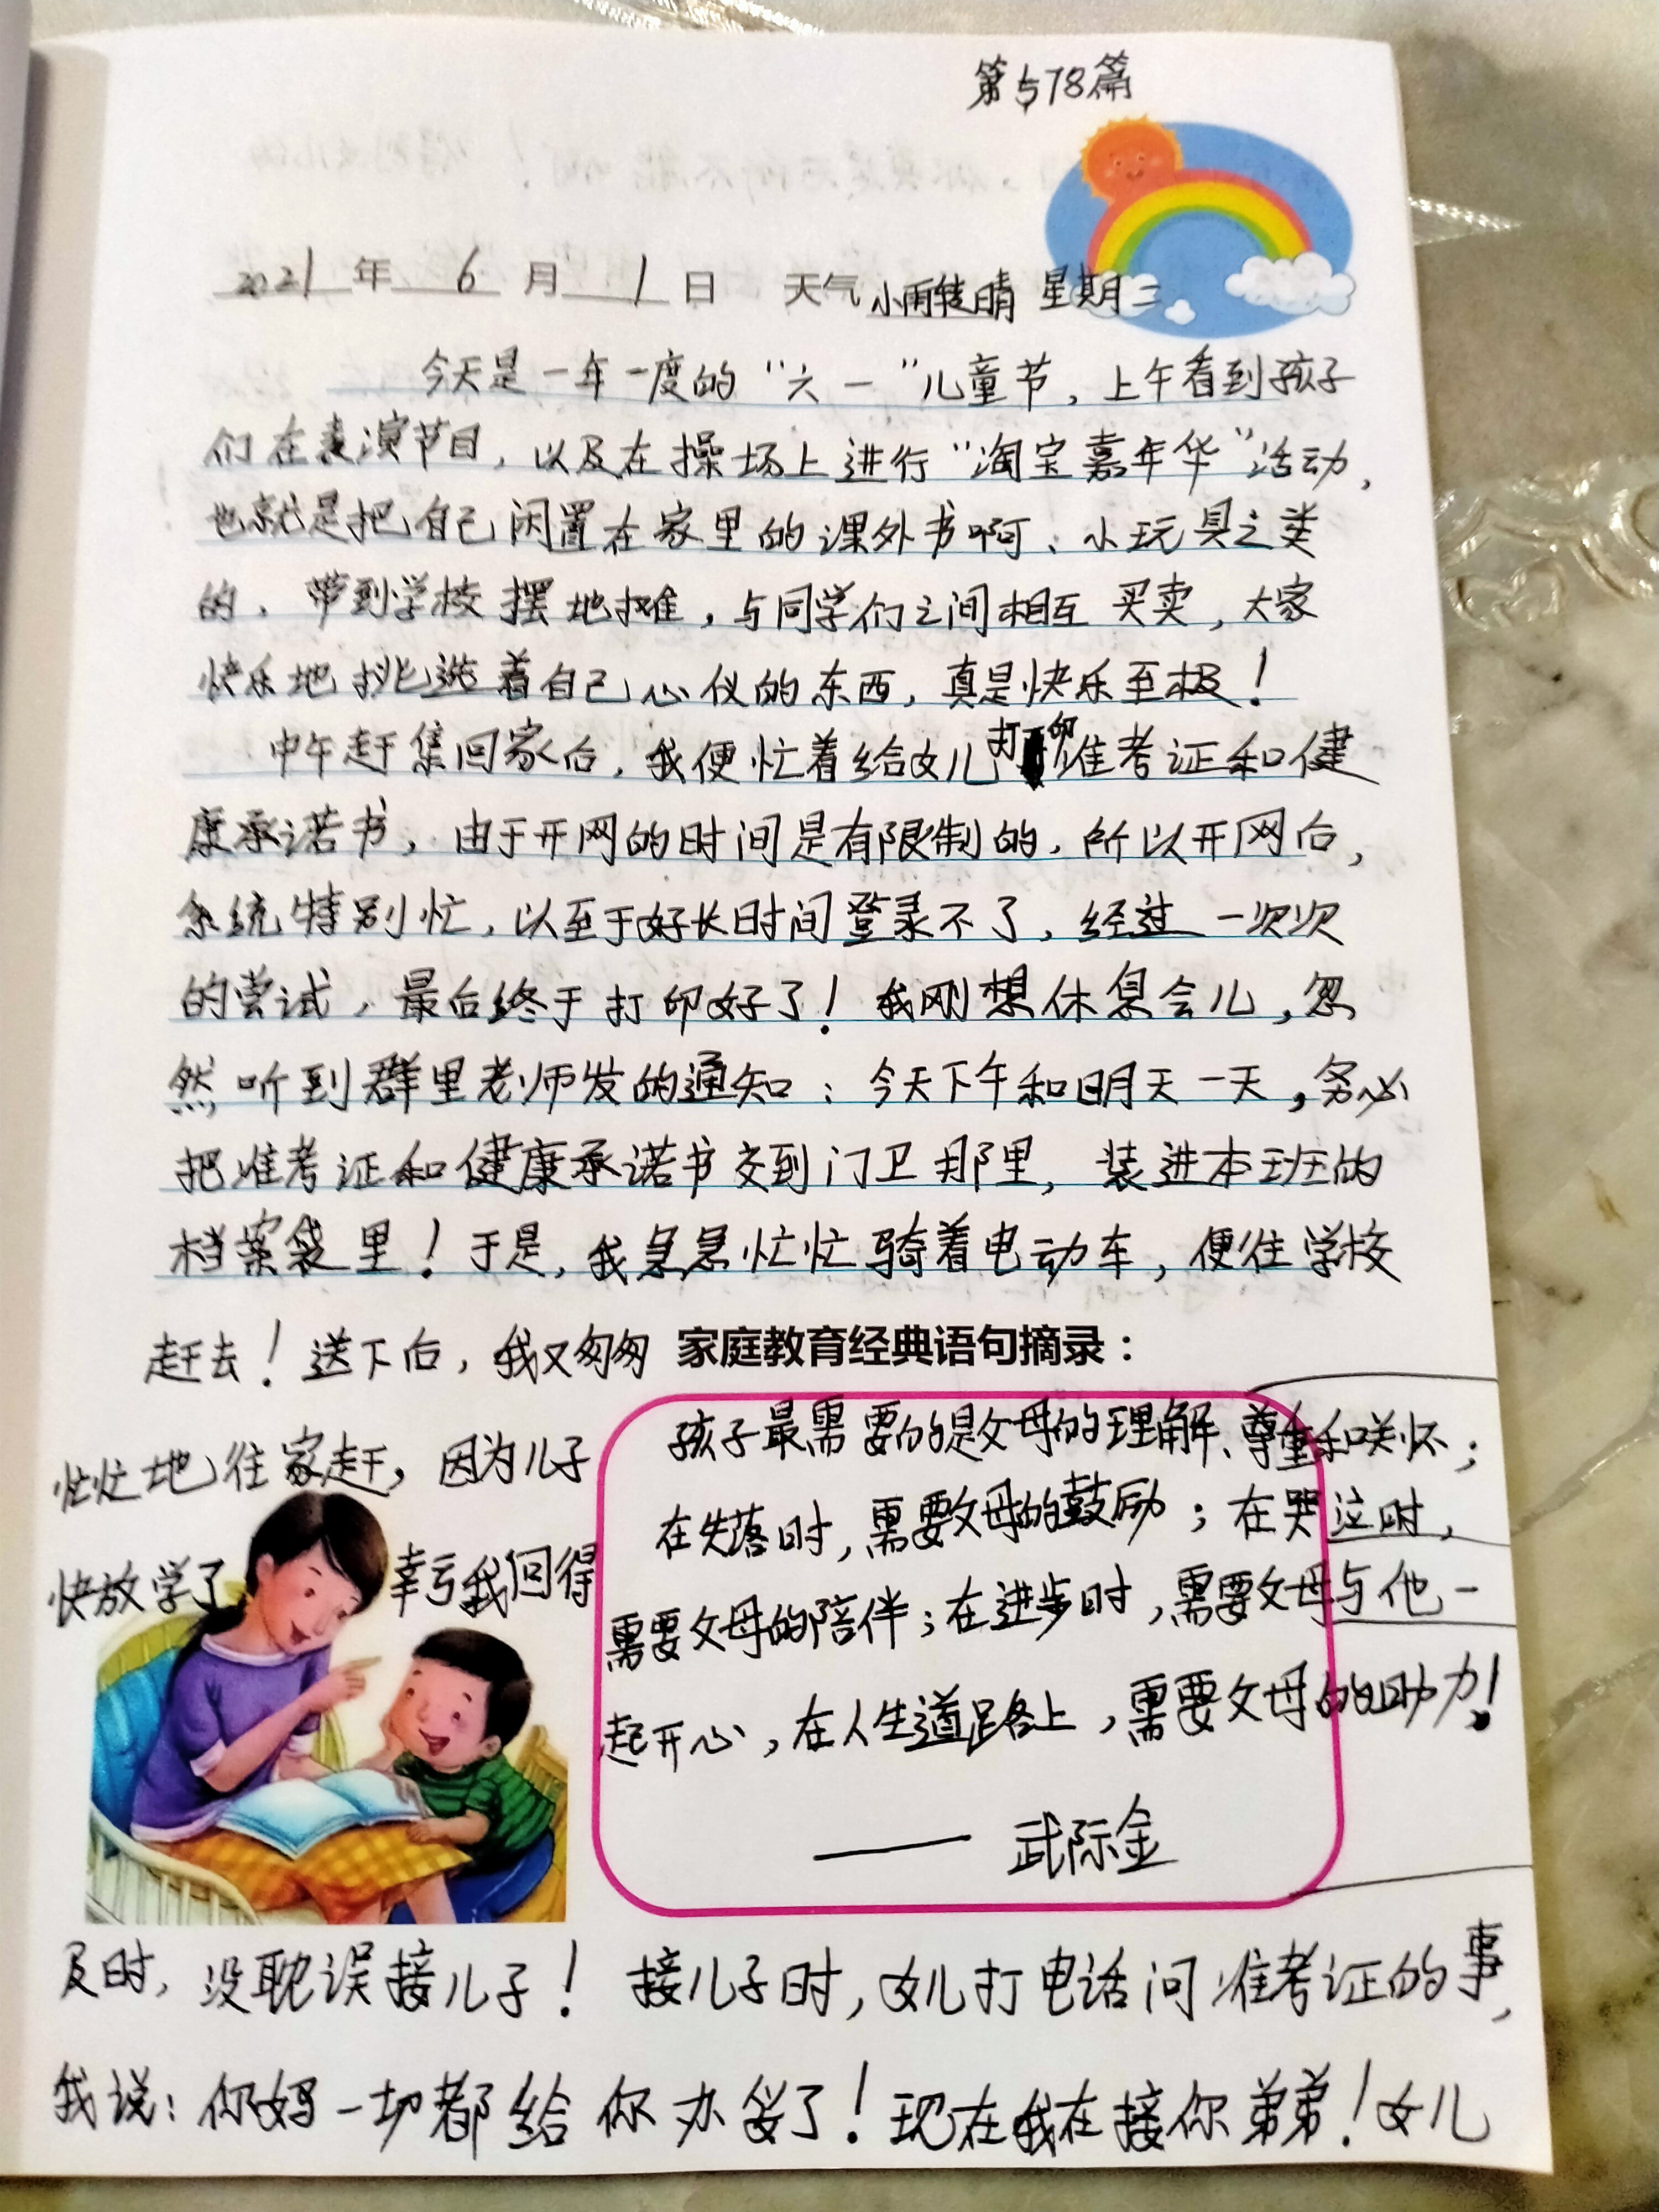 第578篇
2021年 6 月 1 日 天气 小雨转晴 星期二
今天是一年一度的“六一”儿童节，上午看到孩子
们在表演节目，以及在操场上进行“淘宝嘉年华”活动，
也就是把自己闲置在家里的课外书啊、小玩具之类
的，带到学校摆地摊，与同学们之间相互买卖，大家
快乐地挑选着自己心仪的东西，真是快乐至极！
中午赶集回家后，我便忙着给女儿打印准考证和健
康承诺书，由于开网的时间是有限制的，所以开网后，
系统特别忙，以至于好长时间登录不了，经过一次次
的尝试，最后终于打印好了！我刚想休息会儿，忽
然听到群里老师发的通知：今天下午和明天一天，务必
把准考证和健康承诺书交到门卫那里，装进本班的
档案袋里！于是，我急急忙忙骑着电动车，便往学校
赶去！送下后，我又匆匆
忙忙地往家赶，因为儿子
快放学了 幸亏我回得
家庭教育经典语句摘录：
孩子最需要的是父母的理解、尊重和关怀；
在失落时，需要父母的鼓励；在哭泣时，
需要父母的陪伴；在进步时，需要父母与他一
起开心，在人生道路上，需要父母的助力！
—— 武际金
及时，没耽误接儿子！接儿子时，女儿打电话问准考证的事，
我说：你妈一切都给你办妥了！现在我在接你弟弟！女儿